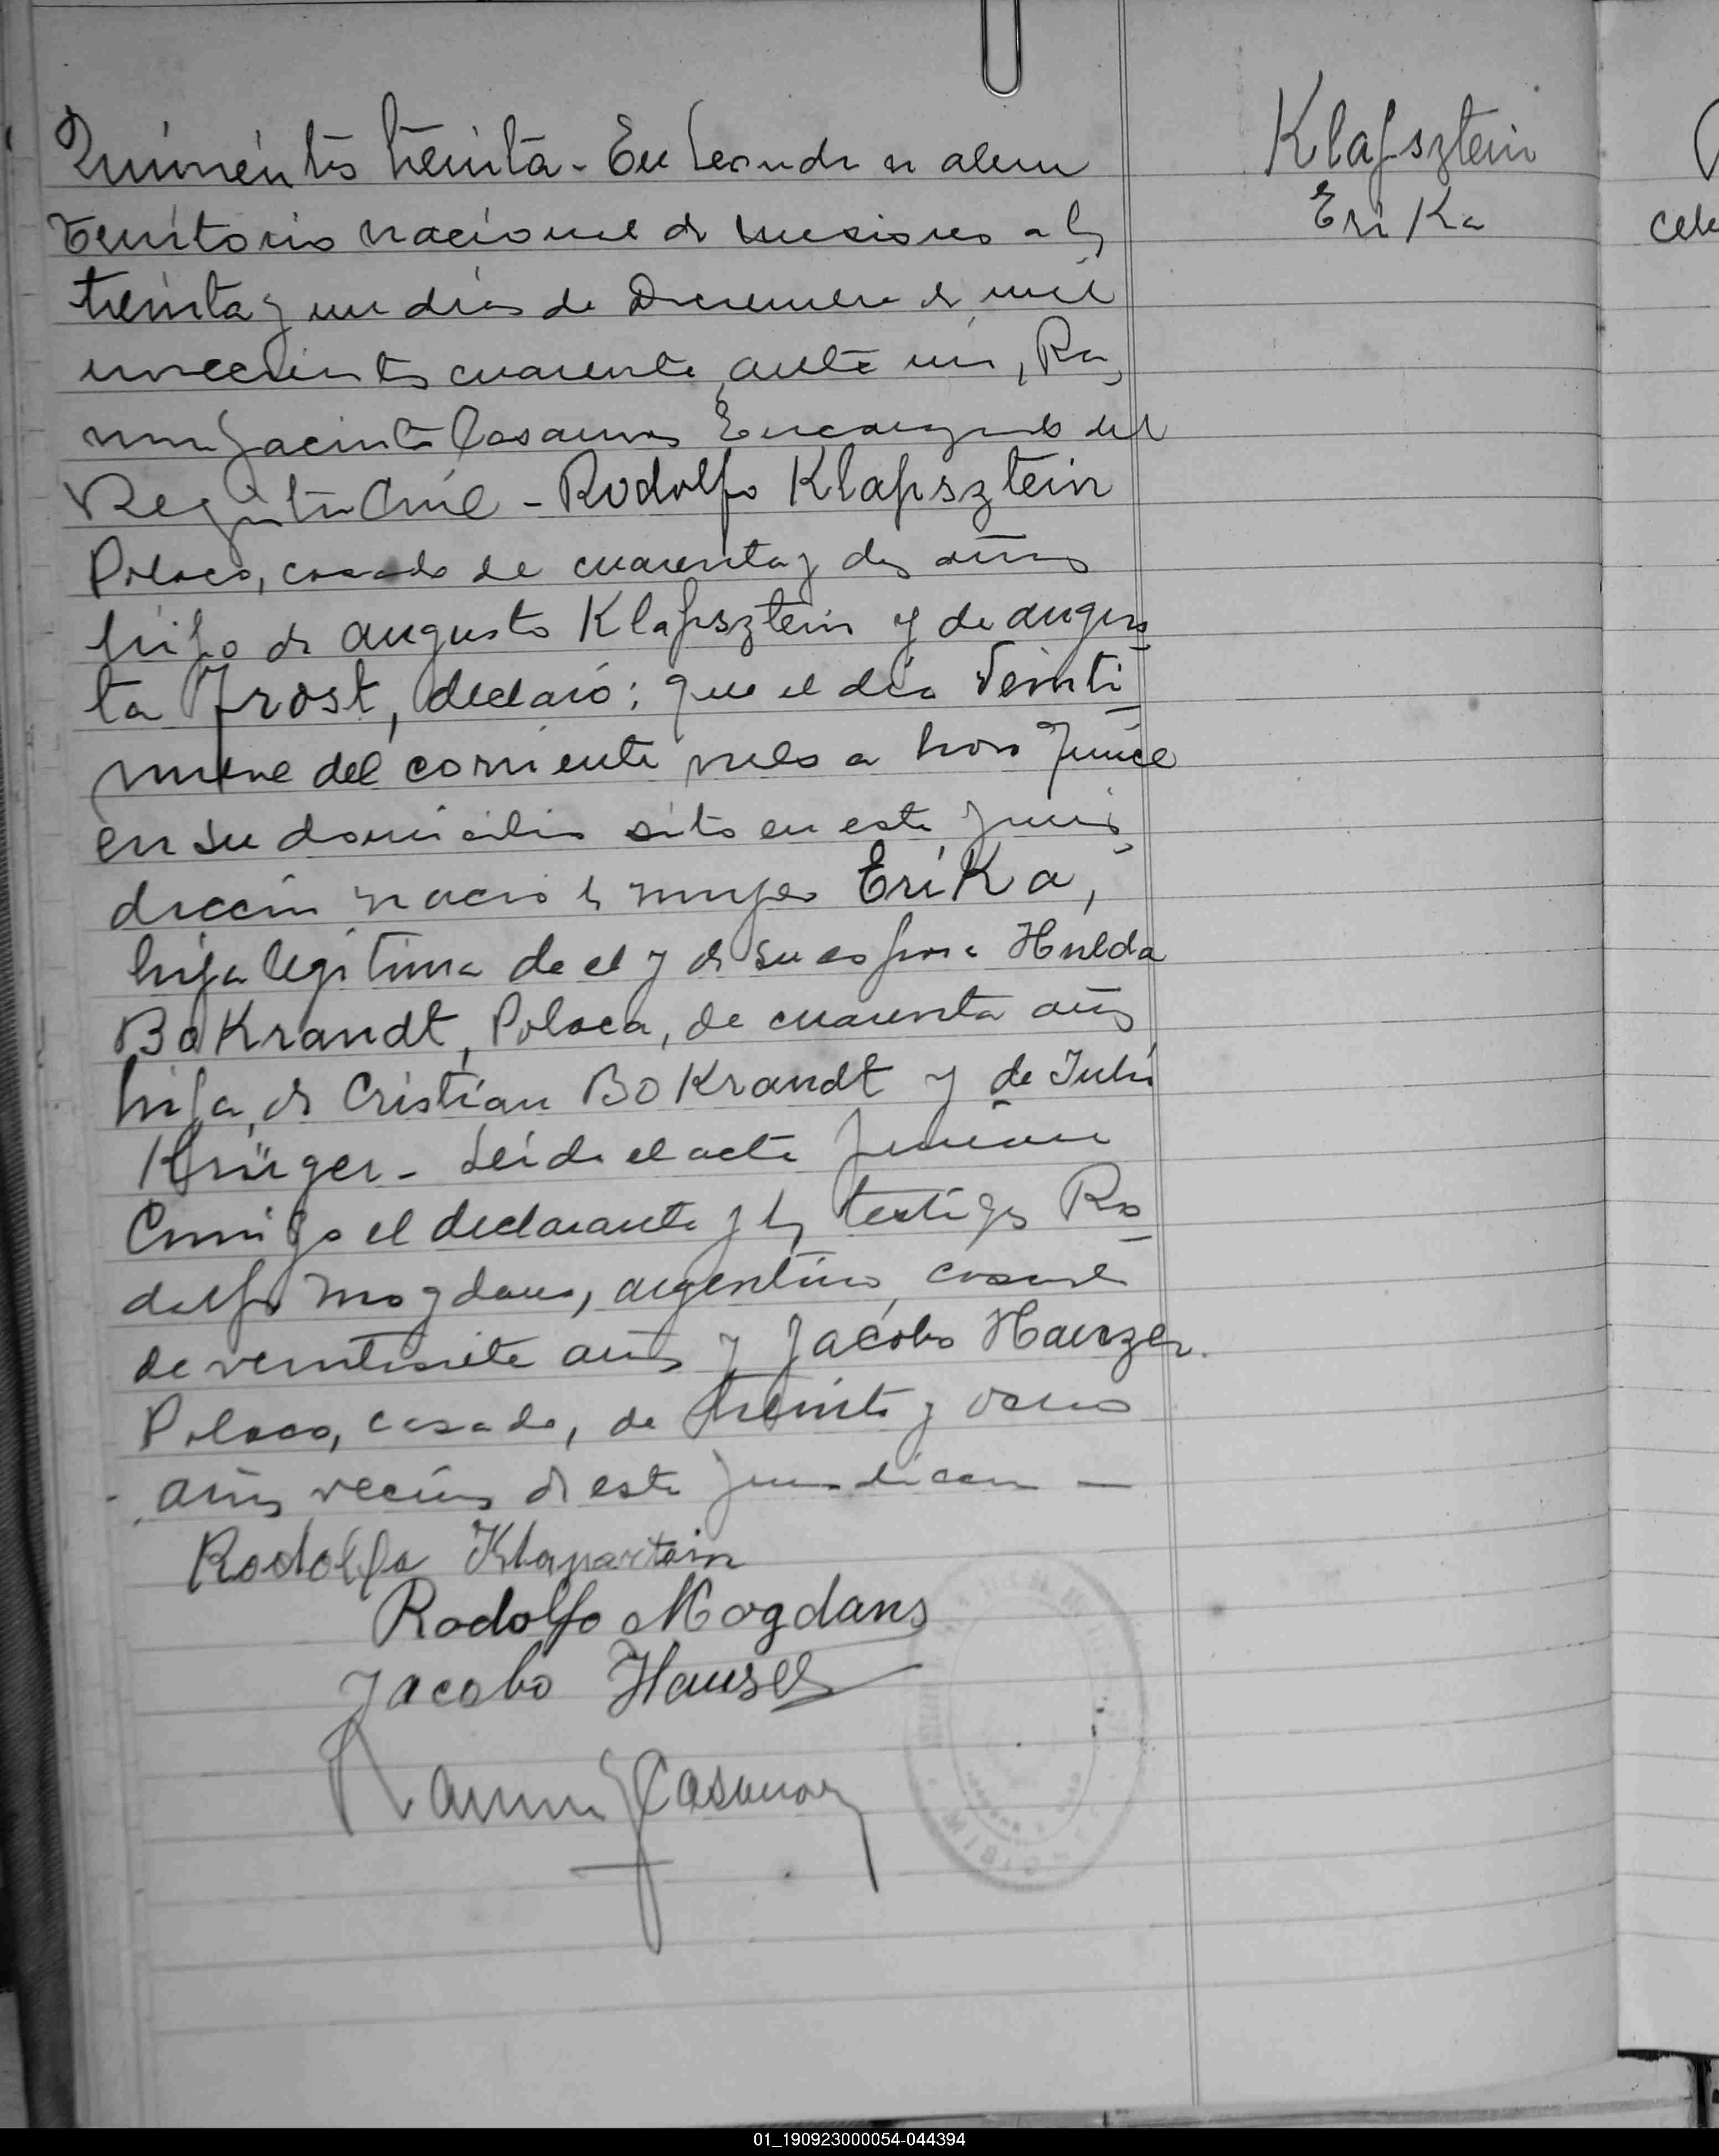 Quinientos treinta - En Leandro n alem
Territorio nacional de Misiones a los
treinta y un dias de Diciembre de mil
novecientos cuarenta, ante mi, Ra
mon Jacinto Casanova Encargado del
Registro Civil - Rodolfo Klapsztein
Polaco, casado de cuarenta y dos años
hijo de augusto Klapsztein y de augus
ta Frost, declaró: que el día Veinti
nueve del corriente mes a horas quince
en su domicilio sito en esta juris
dicción nacio la mujer Erika,
hija legitima de el y de su esposa Hulda
Bokrandt, Polaca, de cuarenta años
hija de Cristian Bokrandt y de Julia
Krüger - Leida el acta firman
Conmigo el declarante y los testigos Ro
dolfo Mogdans, argentino, casado
de veintisiete años y Jacobo Hauzer.
Polaco, casado, de treinta y ocho
años vecinos de esta jurisdiccion -
Rodolfo Klapsztein
Rodolfo Mogdans
Jacobo Hauser
Ramon J Casanova
Klapsztein
Erika
01_190923000054-044394